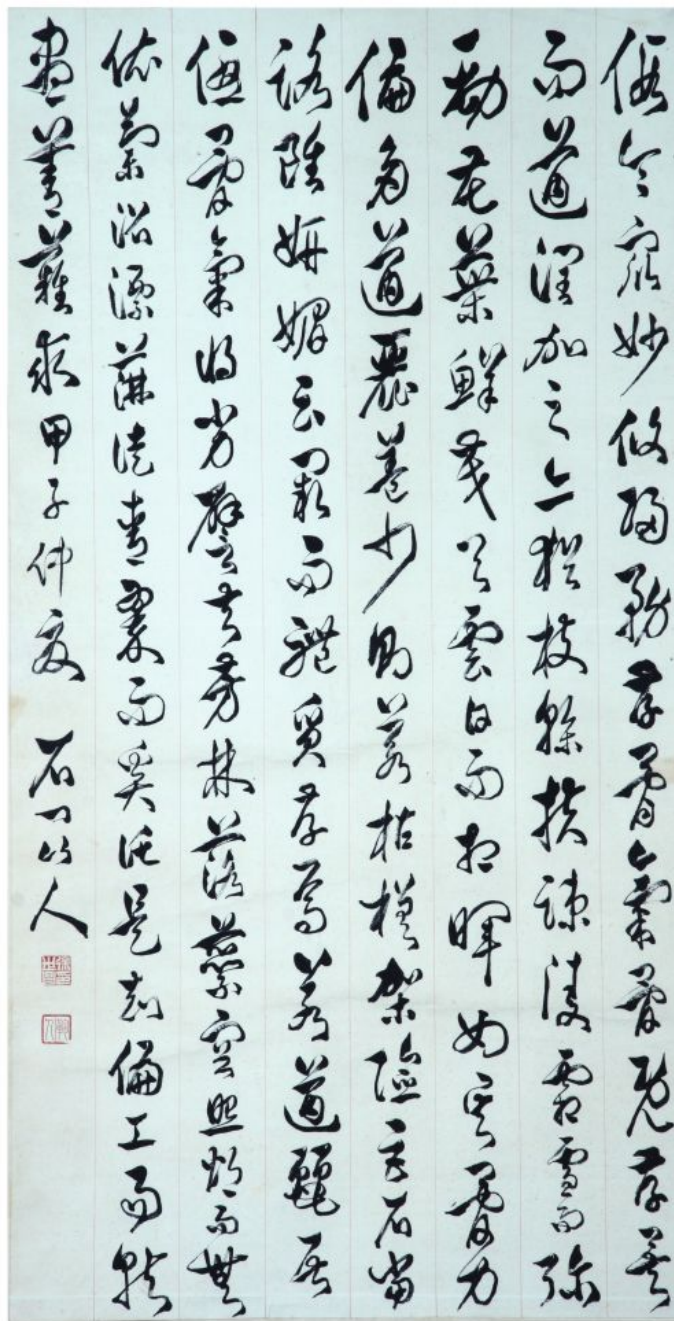 假令衆妙攸歸務存骨氣骨既存矣
而遒潤加之亦猶枝幹扶疏凌霜雪而彌
勁花葉鮮茂與雲日而相暉如其骨力
偏多遒麗蓋少則若枯槎架險巨石當
路雖妍媚云闕而體質存焉若遒麗居
優骨氣將劣譬夫芳林落蕊空照灼而無
依蘭沼漂萍徒青翠而奚託是知偏工易就
盡善難求甲子仲夏 石門人